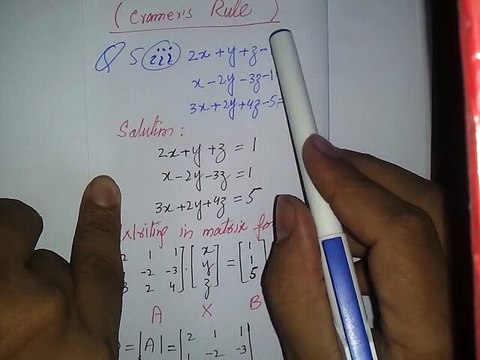 (Cramer's Rule)
Q 5 iii 2x+y+z-
x-2y-3z-1
3x+2y+4z-5=
Solution:
2x+y+z = 1
x-2y-3z = 1
3x+2y+4z = 5
Writing in matrix for
2 1 1 x 1
-2 -3 . y = 1
3 2 4 z 5
A X B
= |A| = 2 1 1
1 -2 -3